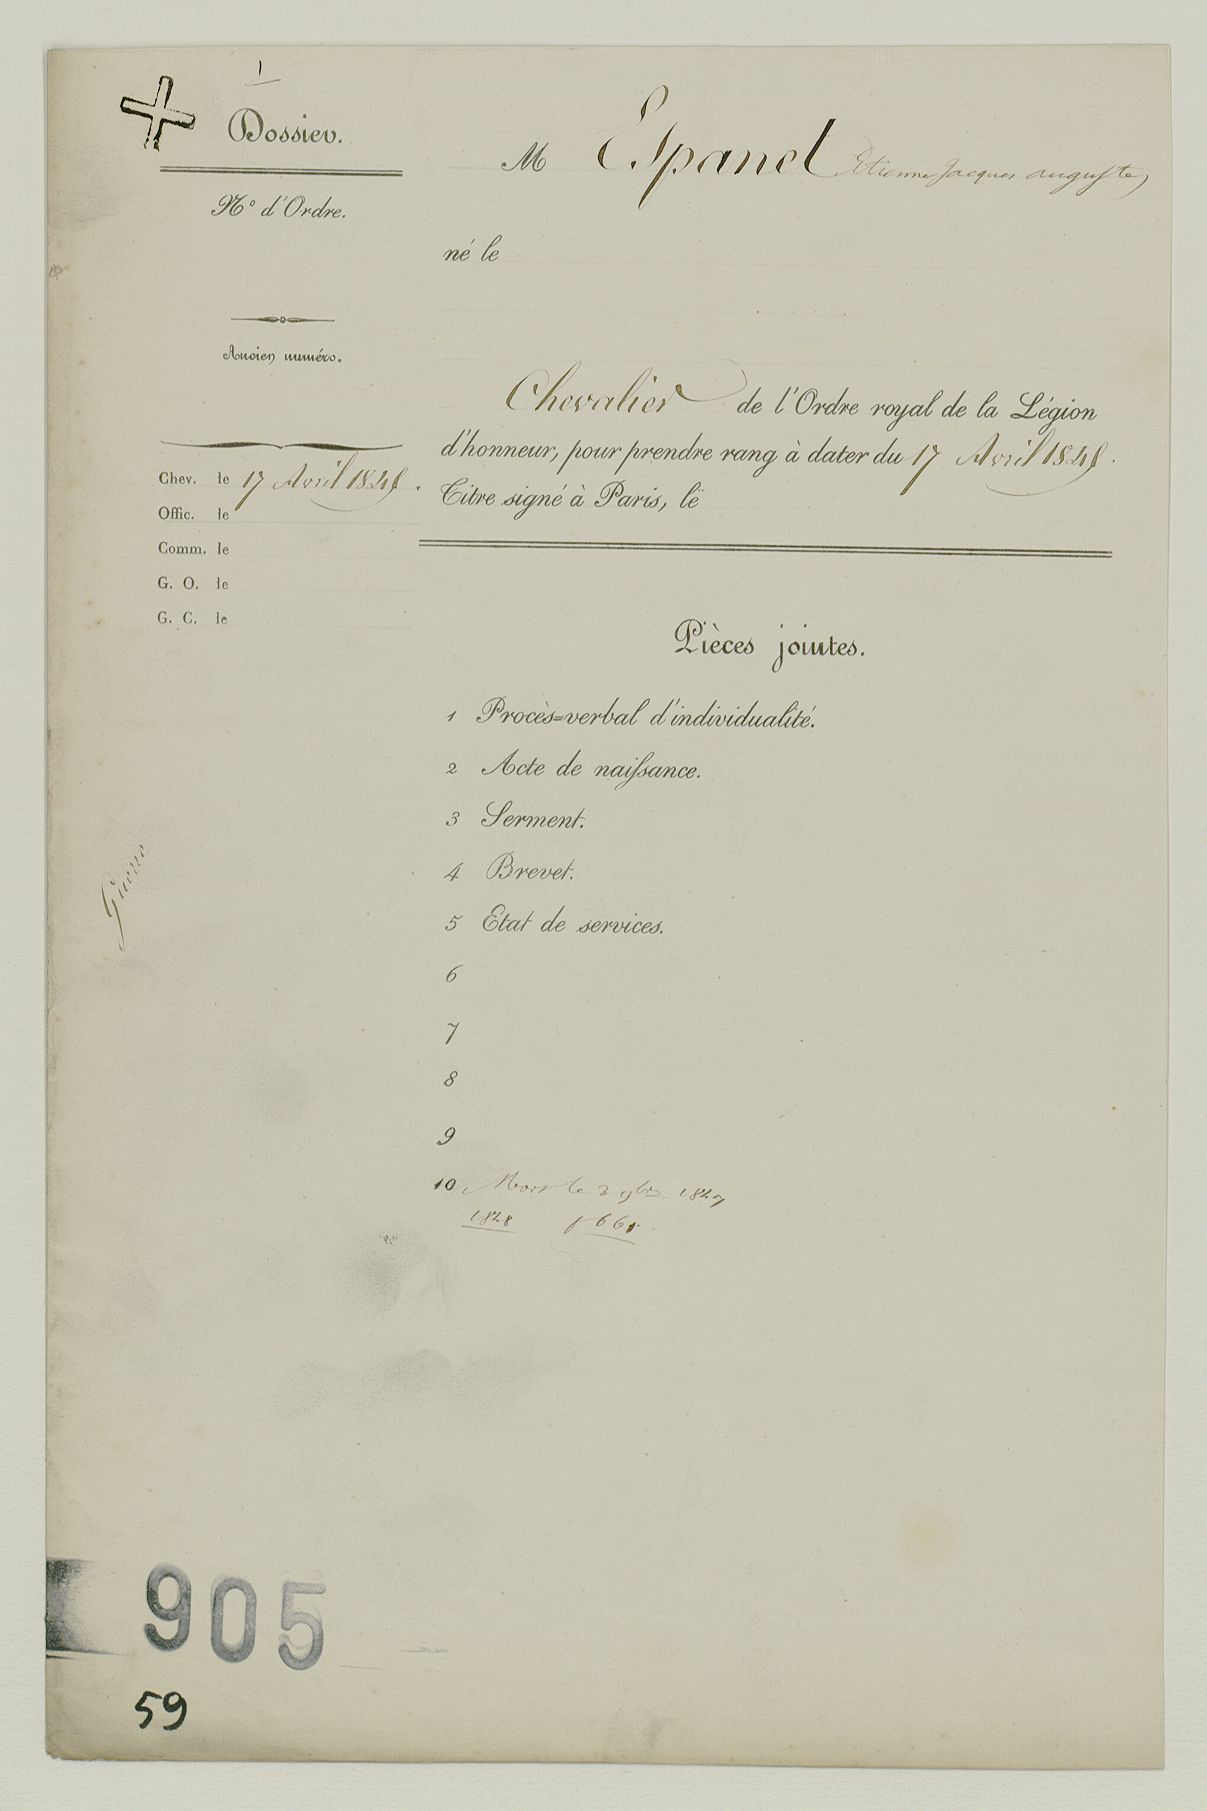 1
Dossier.
N° d'Ordre.
Ancien numéro.
Chev. le 17 Avril 1845.
Offic. le
Comm. le
G. O. le
G. C. le
M Espanet Etienne Jacques auguste,
né le
Chevalier de l'Ordre royal de la Légion
d'honneur, pour prendre rang à dater du 17 Avril 1845.
Titre signé à Paris, le
Pièces jointes.
1 Procès=verbal d'individualité.
2 Acte de naissance.
3 Serment.
4 Brevet.
5 Etat de services.
6
7
8
9
10 Mort le 2 9bre 1847
1848
Guerre
905
59